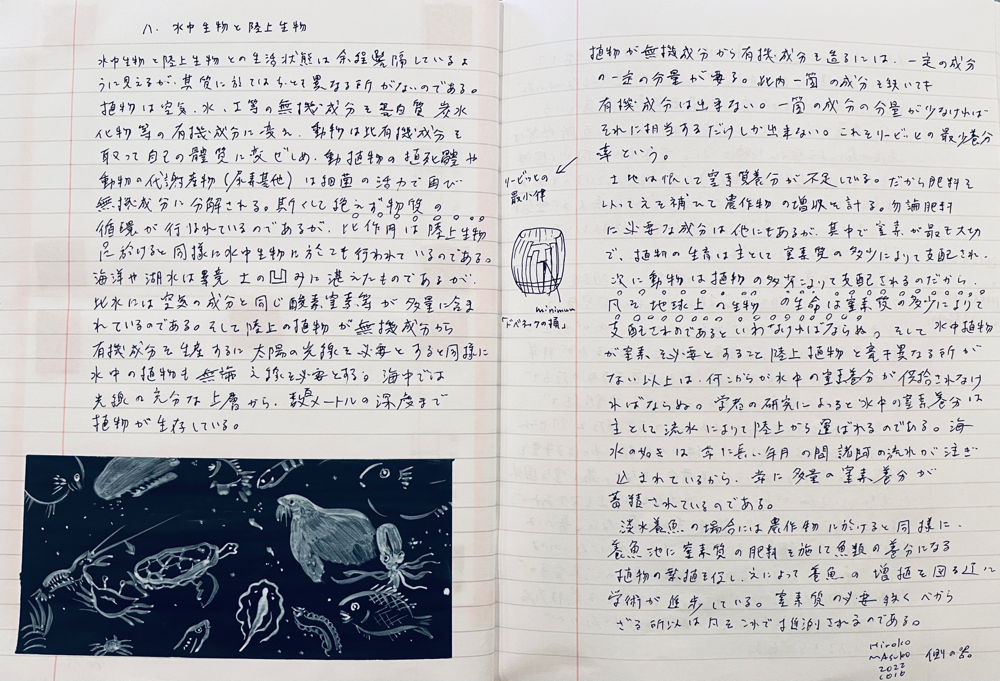 八、水中生物と陸上生物
水中生物と陸上生物との生活状態は余程懸隔しているよ
うに見えるが、其質に於てはちっとも異なる所がないのである。
植物は空気、水、土等の無機成分を蛋白質 炭水
化物等の有機成分に変え、動物は此有機成分を
取って自己の體質に変ぜしめ、動植物の死體や
動物の代謝産物(尿素其他)は細菌の活力で再び
無機成分に分解される。斯くして絶えず物質の
循環が行はれているのであるが、此作用は陸上生物
に於けると同様に水中生物に於ても行われているのである。
海洋や湖水は畢竟 土の凹みに湛えたものであるが、
此水には空気の成分と同じ酸素窒素等が多量に含ま
れているのである。そして陸上の植物が無機成分から
有機成分を生産するに太陽の光線を必要とすると同様に
水中の植物も無論 之を必要とする。海中では
光線の充分な上層から、数百メートルの深度まで
植物が生存している。
植物が無機成分から有機成分を造るには、一定の成分
の一定の分量が要る。此内一箇の成分を缺いても
有機成分は出来ない。一箇の成分の分量が少なければ
それに相当するだけしか出来ない。これをリービッヒの最少養分
率という。
リービッヒの
最小律
minimum
「ドベネックの桶」
土地は概して窒素質養分が不足している。だから肥料を
以って之を補ひて農作物の増収を計る。勿論肥料
に必要な成分は他にもあるが、其中で窒素が最も大切
で、植物の生育は主として窒素質の多少によって支配され、
次に動物は植物の多少によりて支配されるのだから、
凡そ地球上の生物の生命は窒素質の多少によりて
支配されるのであるといわなければならぬ。そして水中植物
が窒素を必要とすること陸上植物と毫も異なる所が
ない以上は、何こからか水中の窒素養分が供給されなけ
ればならぬ。学者の研究によると水中の窒素養分は
主として流水によりて陸上から運ばれるのである。海
水の如きは常に長い年月の間諸河の流水が注ぎ
込まれているから、常に多量の窒素養分が
蓄積されているのである。
淡水養魚の場合には農作物に於けると同様に、
養魚池に窒素質の肥料を施して魚類の養分になる
植物の繁殖を促し、之によって養魚の増殖を図る迄に
学術が進歩している。窒素質の必要缺くべから
ざる所以は凡そこれで推測されるのである。
Hiroko
mAsuko
2022